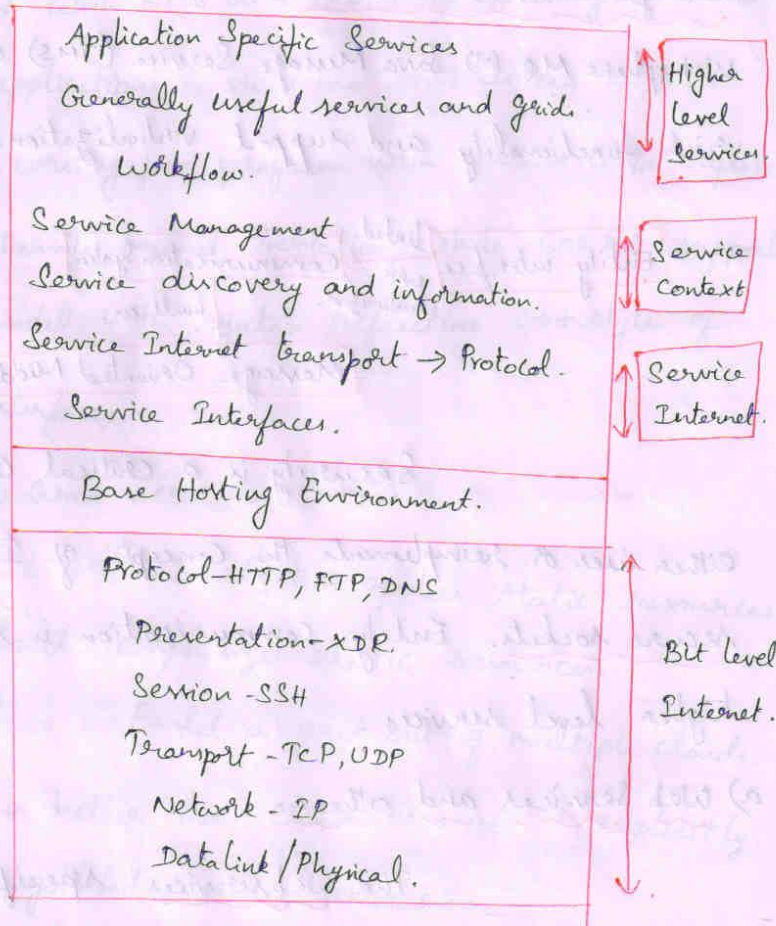 Application Specific Services
Generally useful services and grid.
Workflow.
Service Management
Service discovery and information.
Service Internet transport → Protocol.
Service Interfaces.
Base Hosting Environment.
Protocol-HTTP, FTP, DNS
Presentation-XDR.
Session -SSH
Transport -TCP, UDP
Network - IP
Datalink/Physical.
Higher
level
Services.
Service
Context
Service
Internet.
Bit level
Internet.